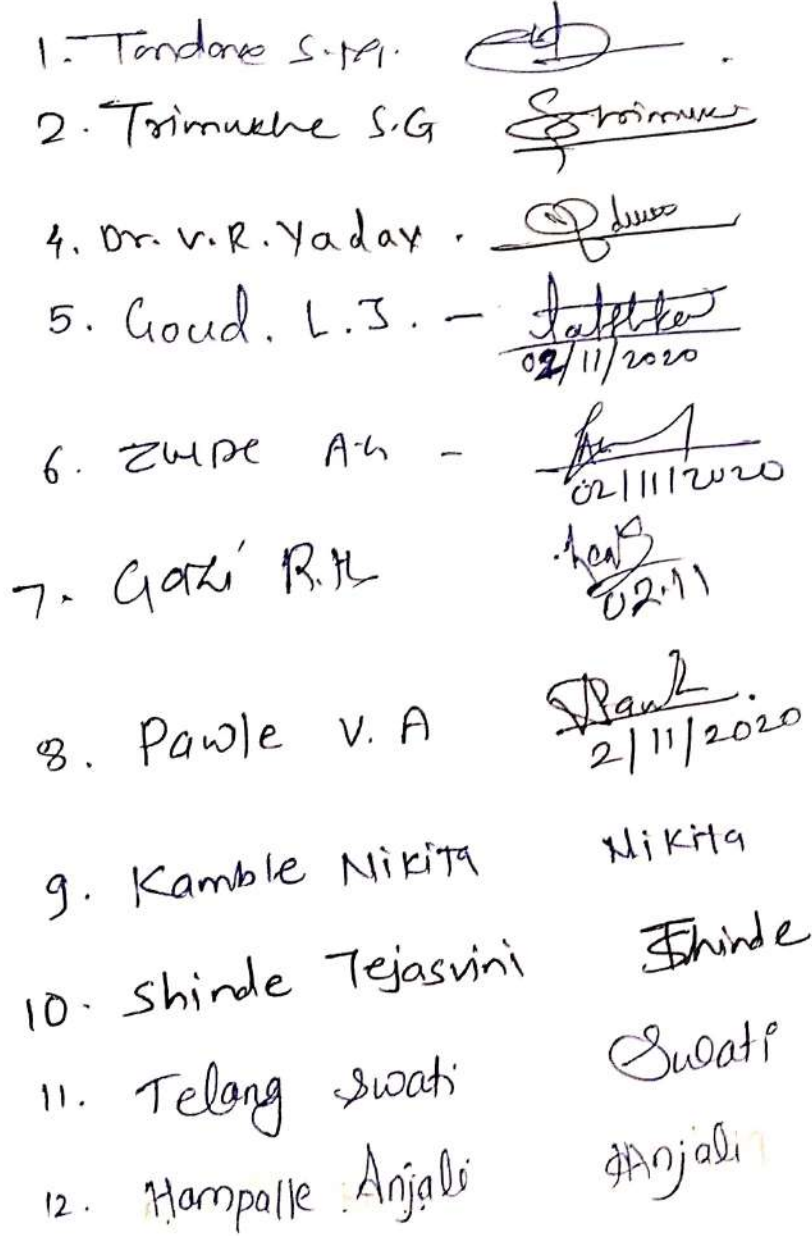 1. Tandare S.M.
2. Trimukhe S.G Strimuke
4. Dr. V.R. Yadav.
5. Goud. L.J. -
02/11/2020
6. Zulpe A.G -
02/11/2020
7. Gazi R.H
02.11
8. Pawle V. A
2/11/2020
9. Kamble Nikita Nikita
10. Shinde Tejasvini Shinde
11. Telang Swati Swati
12. Hampalle Anjali Anjali